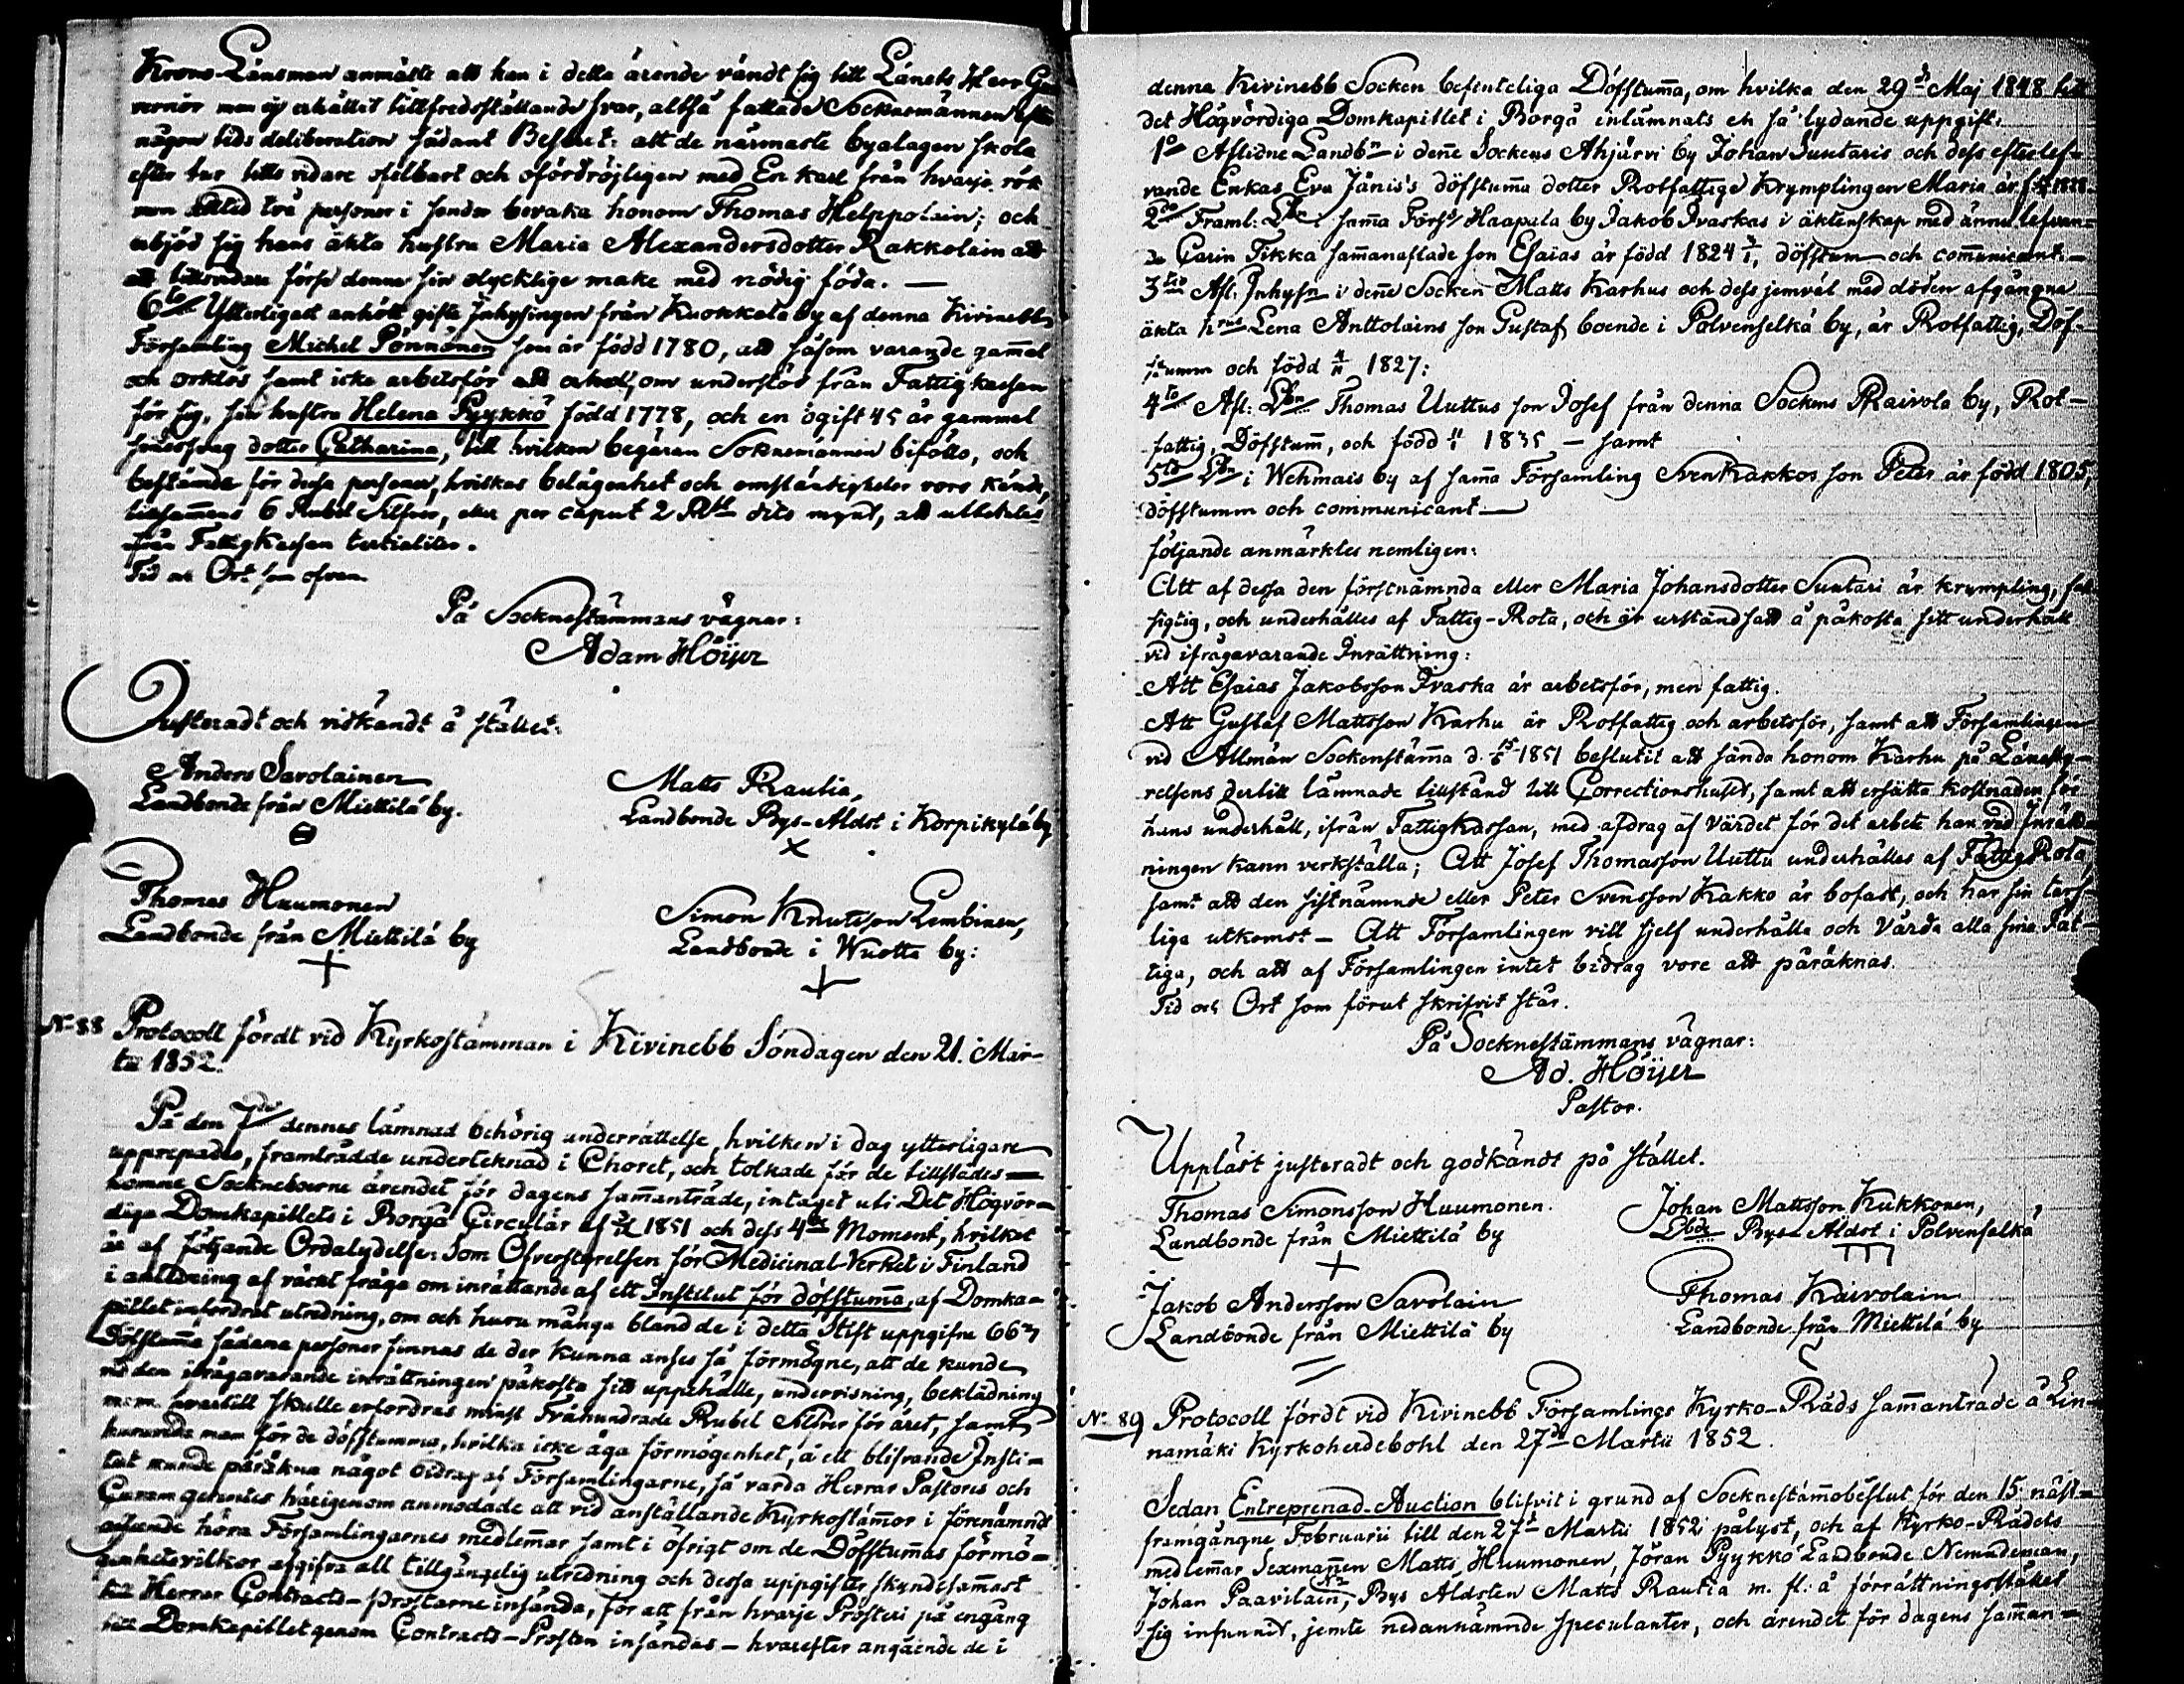 Krono-Länsman anmälte att han i detta ärende vändt sig till Länets Herr Gu-
vernör men ej erhållit tillfredsställande svar, altså fattade Socknemännen efter
någon tids deliberation sådant Beslut: att de närmaste byalagen skola
efter tur tills vidare ofelbart och ofördröjligen med En karl från hvarje rök
men alltid två personer i sender bevaka honom Thomas Helppolain; och
utbjöd sig hans äkta hustru Maria Alexandersdotter Rakkolain att
förse denne sin olycklige make med nödig föda. —
6to Ytterligast anhöll gifte Inhysingen från Kuokkala by af denna Kivinebb
Församling Michel Pönnönen som är född 1780, att såsom varande gammal
och orklös samt icke arbetsför att erhålla om understöd från Fattigkassan
för sig, sin hustru Helena Pyykkö född 1778, och en ogift 45 år gammal
dotter Catharina, till hvilken begäran Soknemännen biföllo, och
bestämde för dessa personer, hvilkas belägenhet och omständigheter voro kända,
tillsammans 6 Rubel Silfver, eller per caput 2 Rbl dito mynt, att utbetalas
från Fattigkassan tertialiter.
Tid och Ort som ofvan.
På Socknestämmans vägnar:
Adam Höijer
Justeradt och vidkändt å stället:
Anders Savolainen
Landbonde från Miettilä by.
Matts Rautia,
Landbonde Bys-Äldst i Korpikylä by
Thomas Huumonen
Landbonde från Miettilä by
Simon Knutsson Lembinen,
Landbonde i Wuotta by:
No 88 Protocoll fördt vid Kyrkostämman i Kivinebb Söndagen den 21. Mar-
tii 1852.
På den 7de dennes lämnad behörig underrättelse, hvilken i dag ytterligare
upprepades, framträdde undertecknad i Choret, och tolkade för de tillstädes-
komne Sockneboerne ärendet för dagens sammanträde, intaget uti Det Högvör-
diga Domkapitlets i Borgå Circulär af 1851 och dess 4de Moment, hvilket
är af följande Ordalydelse: Som Öfverstyrelsen för Medicinal-Verket i Finland
i anledning af väckt fråga om inrättande af ett Institut för döfstumma, af Domka-
pitlet infordrat utredning, om och huru många bland de i detta Stift uppgifne 66
Döfstumma sådana personer finnas de der kunna anses så förmögne, att de kunde
vid den ifrågavarande inrättningen påkosta sitt uppehälle, undervisning, beklädning
m.m. hvartill skulle erfordras minst Tråhundrade Rubel Silfver för året, samt
huruvida man för de döfstumma, hvilka icke äga förmögenhet, å ett blifvande Insti-
tut kunde påräkna något bidrag af Församlingarne, så varda Herrar Pastores och
Curam gerentes härigenom anmodade att vid anställande Kyrkostämmor i förenämnde
afseende höra Församlingarnes medlemmar samt i öfrigt om de Döfstummas förmö-
genhetsvilkor afgifva all tillgängelig utredning och dessa uppgifter skyndesammast
till Herrar Contracts-Prostarne insända, för att från hvarje Prosteri på engång
till Domkapitlet genom Contracts-Prosten insändas – hvarefter angående de i
denna Kivinebb Socken befinteliga Döfstumma, om hvilka den 29de Maj 1848 till
det Högvördiga Domkapitlet i Borgå inlämnats en så lydande uppgift:
1o Aflidne Landbn i denne Sockens Ahjärvi by Johan Suutaris och dess efterlef-
vande Enkas Eva Jänis's döfstumma dotter Rotfattige Krymplingen Maria är född
2do Framl: Lbn i samma Förs: Haapala by Jakob Ivaskas i äktenskap med ännu lefvan-
de Carin Tikka sammanaflade son Esaias är född 1824, döfstum och communicant. —
3tio Afl: Inhysn i denne Socken Matts Karhus och dess jemväl med döden afgångna
äkta hrus Lena Anttolains son Gustaf, boende i Polvenselkä by, är Rotfattig, Döf-
stumm och född 4/11 1827:
4to Afl: Lbn Thomas Uuttus son Josef från denna Sockens Raivola by, Rot-
fattig, Döfstumm, och född 1835 – samt
5to Lbn i Wehmais by af samma Församling Sven Kakkos son Peter är född 1805,
döfstumm och communicant —
följande anmärktes nemligen:
Att af dessa den förstnämnda eller Maria Johansdotter Suutari är krympling,
sigtig, och underhålles af Fattig-Rota, och är urståndsatt å påkosta sitt underhåll
vid ifrågavarande Inrättning:
Att Esaias Jakobsson Ivaska är arbetsför, men fattig.
Att Gustaf Mattsson Karhu är Rotfattig och arbetsför, samt att Församlingen
vid Allmän Sockenstämma d. 15/6 1851 beslutit att sända honom Karhu på Länesty-
relsens dertill lämnade tillstånd till Correctionshuset, samt att ersätta kostnaden för
hans underhåll, ifrån Fattigkassan, med afdrag af värdet för det arbete han vid Inrätt-
ningen kann verkställa; Att Josef Thomasson Uuttu underhålles af FattigRota,
samt att den sistnämnde eller Peter Svensson Kakko är bofast, och har sin tarf-
liga utkomst – Att Församlingen vill sjelf underhålla och Vårda alla sina Fat-
tiga, och att af Församlingen intet bidrag vore att påräknas.
Tid och Ort som förut skrifvit står.
På Socknestämmans vägnar:
Ad. Höijer
Pastor.
Uppläst justeradt och godkändt på stället.
Thomas Simonsson Huumonen.
Landbonde från Miettilä by
Johan Mattsson Kukkonen,
Lbde Bys-Äldst i Polvenselkä
Jakob Andersson Savolain
Landbonde från Miettilä by
Thomas Kaivolain
Landbonde från Miettilä by
No 89 Protocoll fördt vid Kivinebb Församlings Kyrko-Råds sammanträde å Lin-
namäki Kyrkoherdebohl den 27de Martii 1852.
Sedan Entreprenad-Auction blifvit i grund af Socknestämmobeslut för den 15. näst-
framgångne Februarii till den 27de Martii 1852 pålyst, och af Kyrko-Rådets
medlemmar Sexmannen Matts Huumonen, Jöran Pyykkö Landbonde Nemndeman,
Johan Paavilain, Bys Äldsten Matts Rautia m. fl. å förrättningsstället
sig infunnit, jemte nedannämnde speculanter, och ärendet för dagens samman-